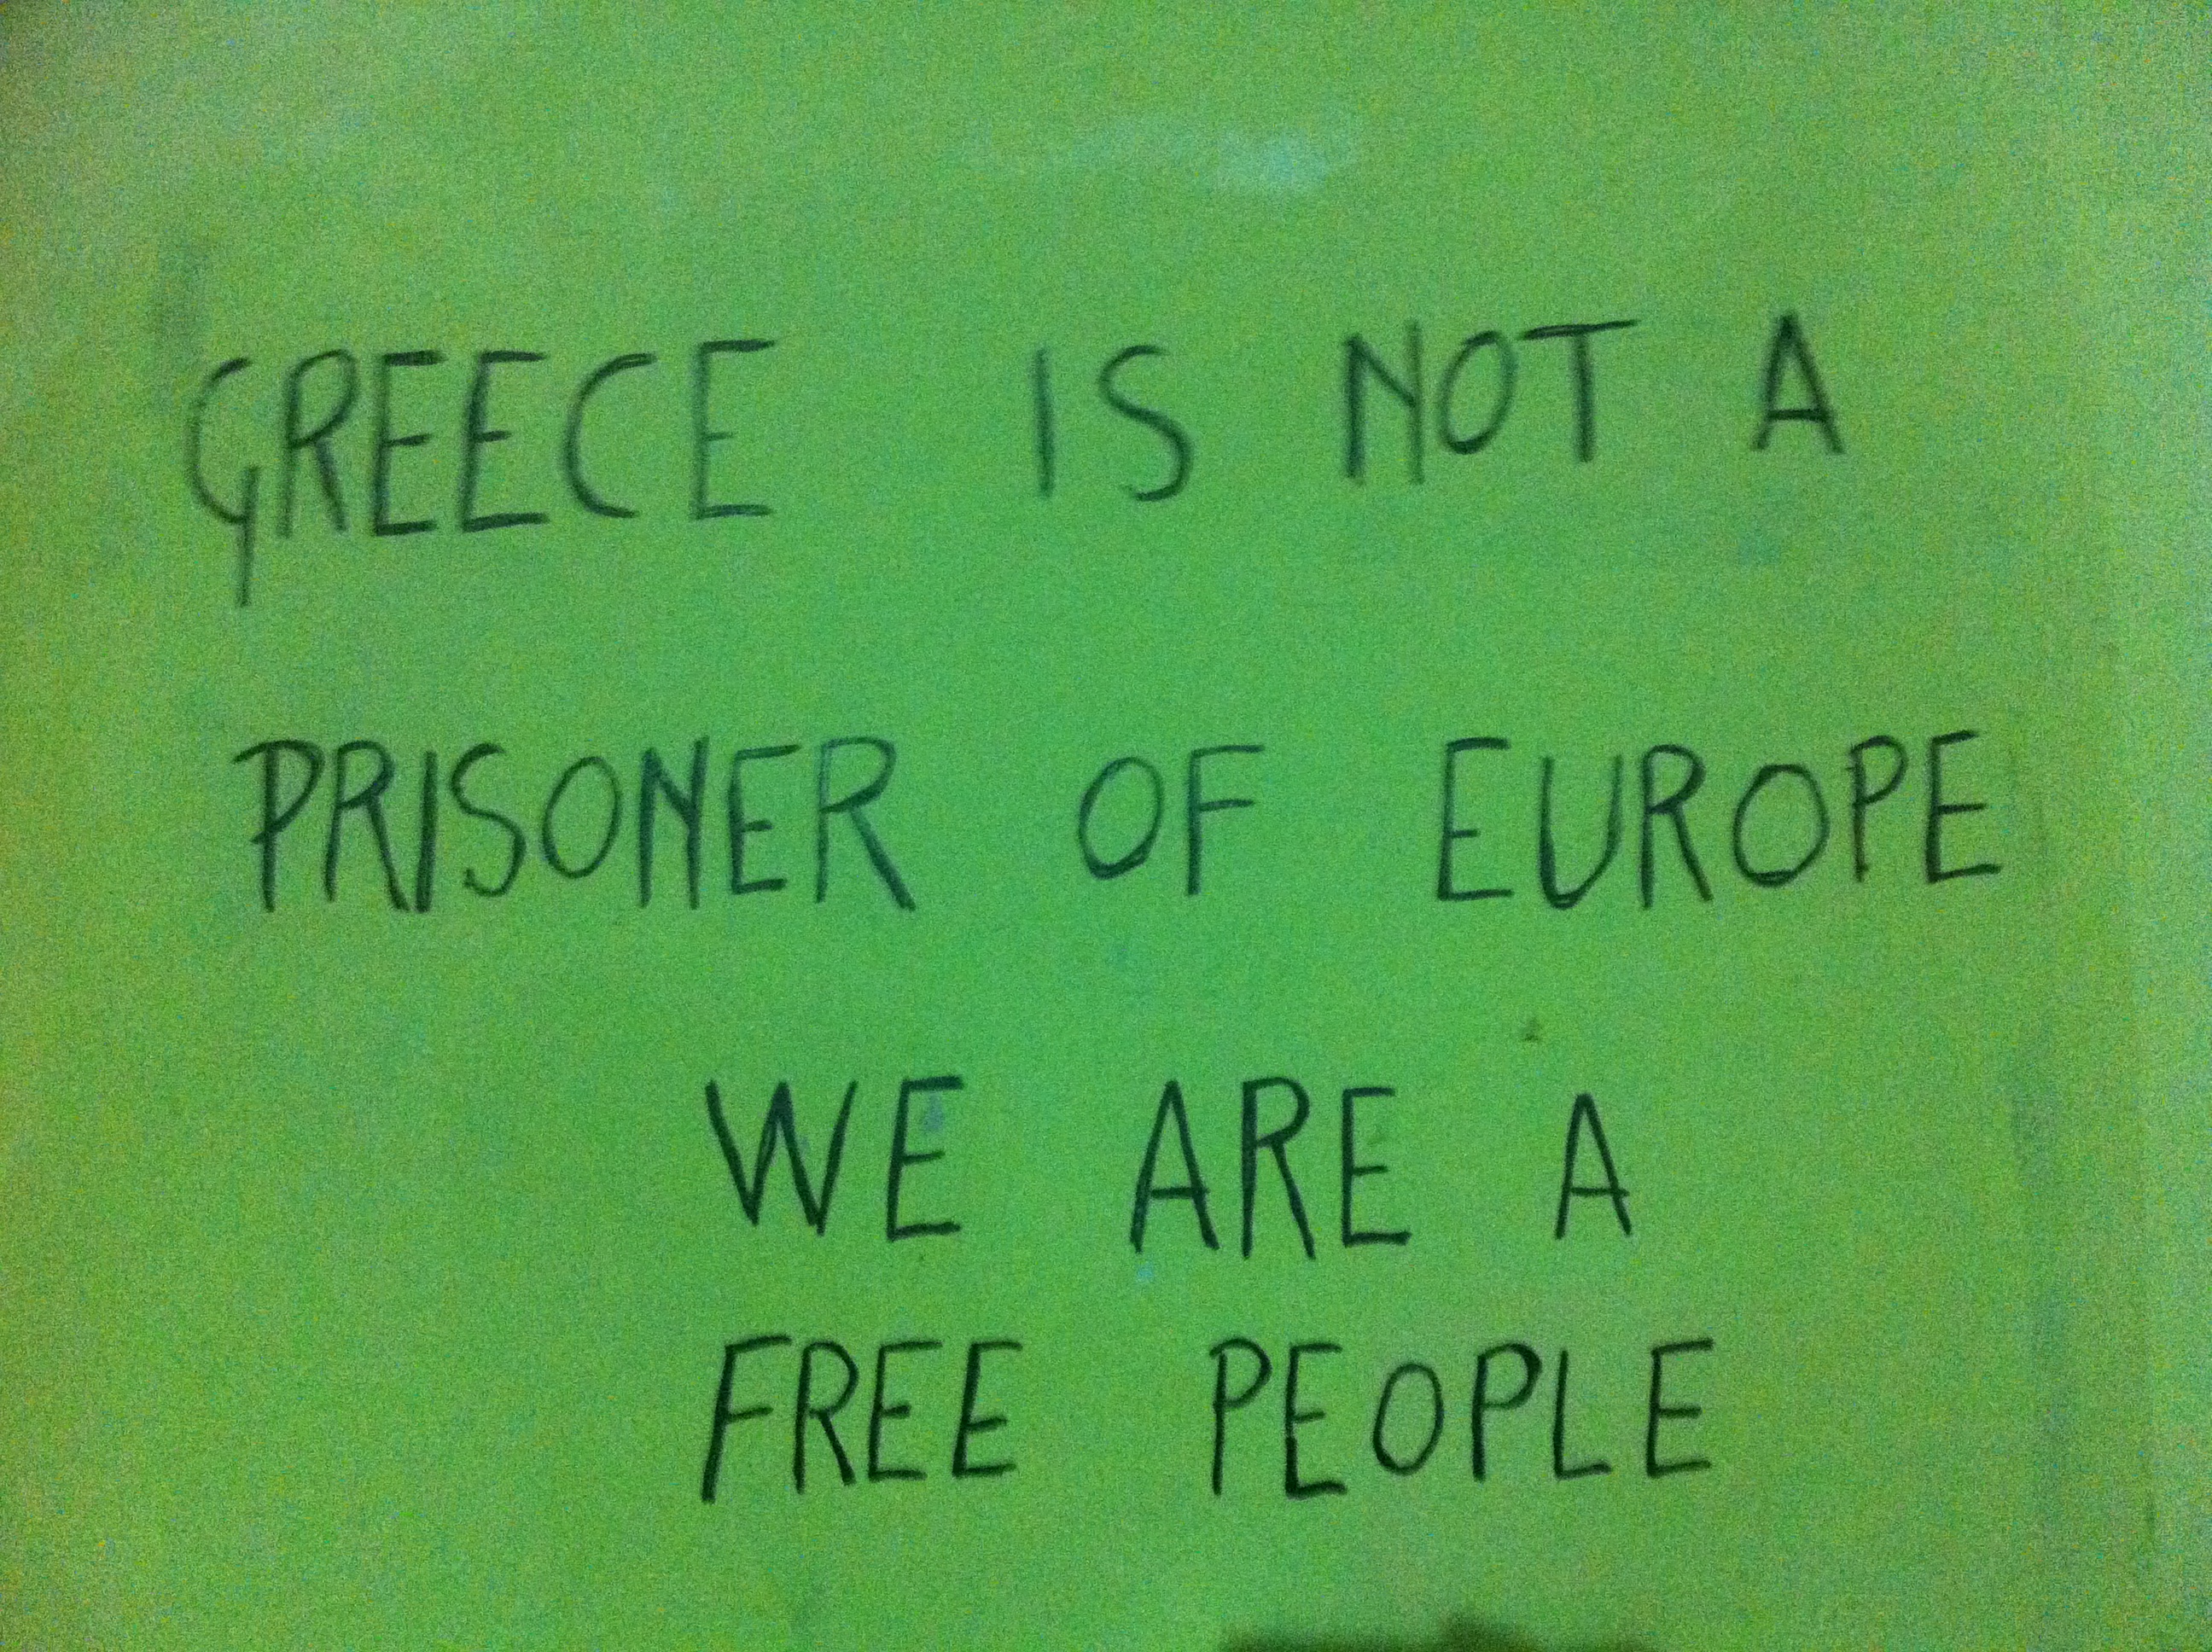 GREECE IS NOT A
PRISONER OF EUROPE
WE ARE A
FREE PEOPLE